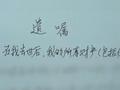 遗嘱
在我去世后，我的所有财产（包括